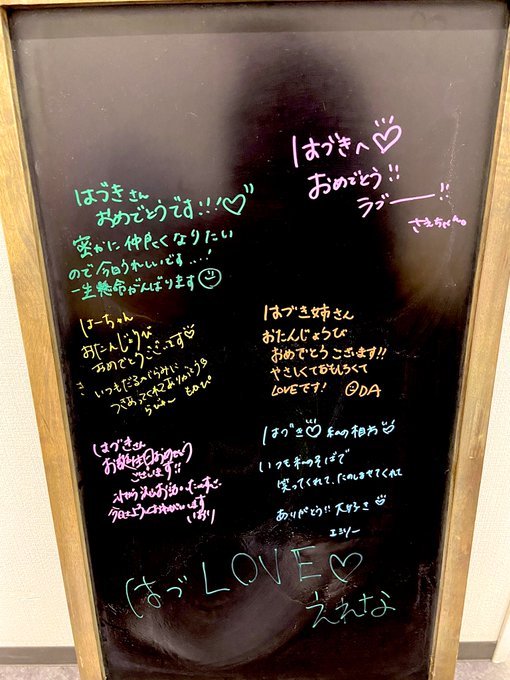 はづきへ♡
おめでとう!!
ラブー!!
はづきさん
おめでとうです!!!♡
密かに仲良くなりたい
ので今日うれしいです...!
一生懸命がんばります
はーちゃん
おたんじょうび
おめでとうございます♡
いつもだるがらみに
つきあってくれてありがとう
はづき姉さん
おたんじょうび
おめでとうございます!!
やさしくておもしろくて
LOVEです! ODA
はづき♡私の相方
いつも私のそばで
笑ってくれて、たのしませてくれて
ありがとう!! 大好き
エミリー
はづきさん
お誕生日おめでとう
ございます!!
今日はよろしくおねがいします
いおり
はづLOVE♡
えれな